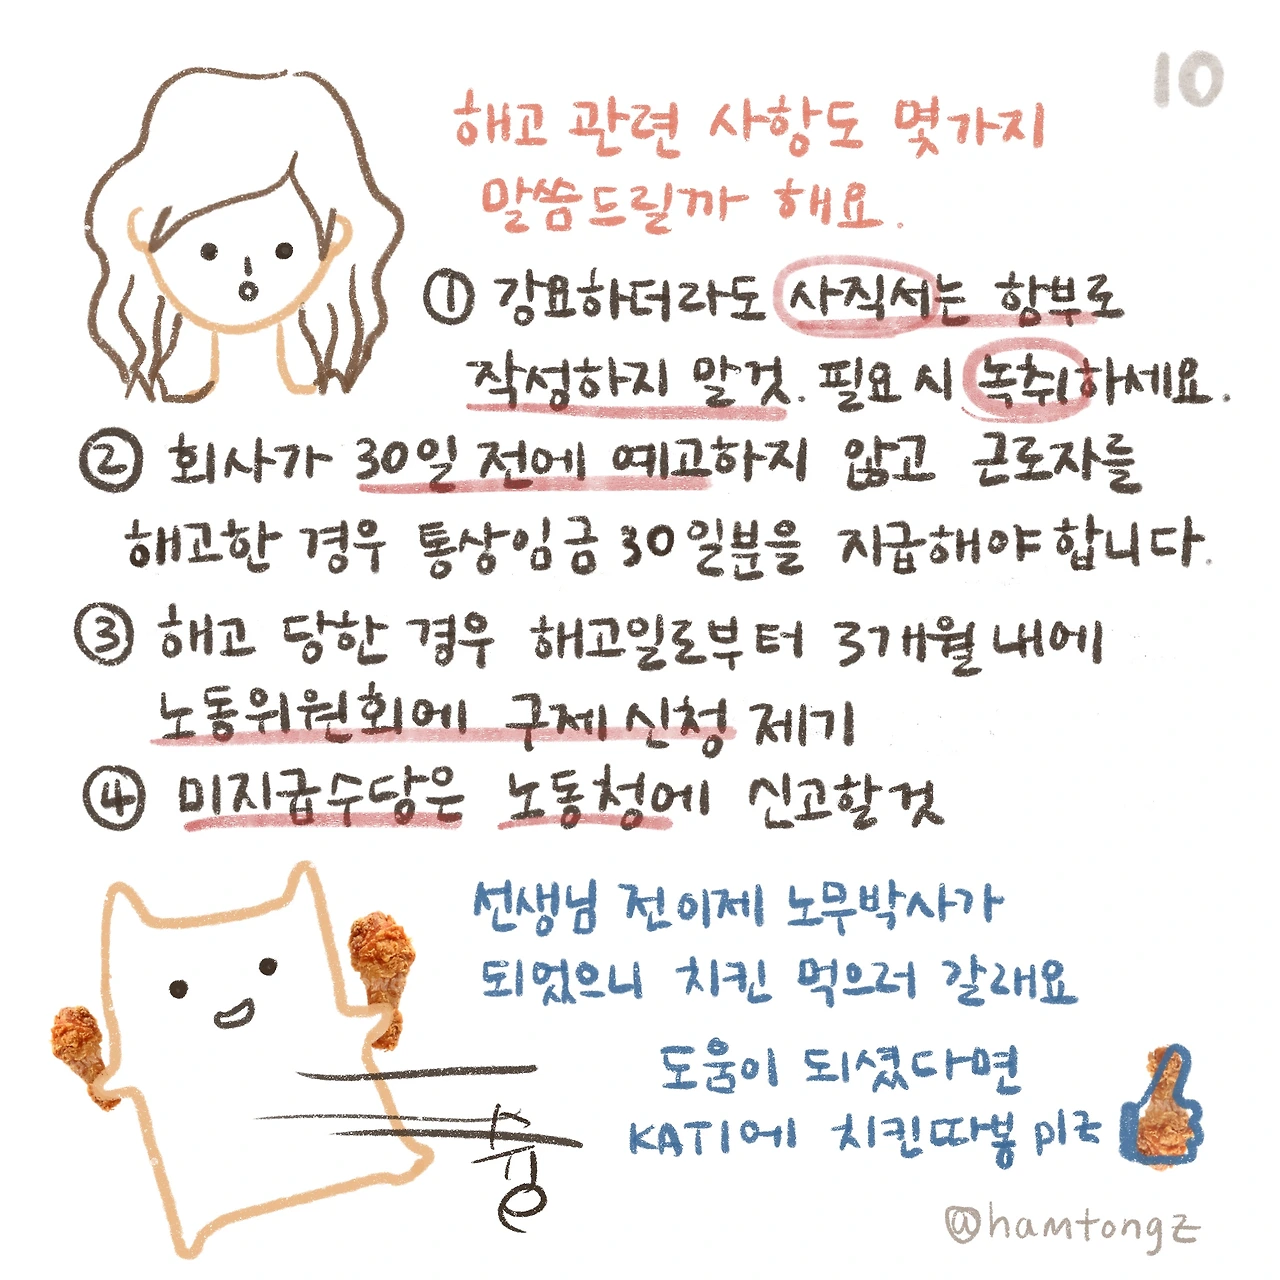 10
해고 관련 사항도 몇가지
말씀드릴까 해요.
① 강요하더라도 사직서는 함부로
작성하지 말것. 필요시 녹취하세요.
② 회사가 30일 전에 예고하지 않고 근로자를
해고한 경우 통상임금 30일분을 지급해야합니다.
③ 해고 당한 경우 해고일로부터 3개월내에
노동위원회에 구제신청 제기
④ 미지급수당은 노동청에 신고할것
선생님 전이제 노무박사가
되었으니 치킨 먹으러 갈래요
도움이 되셨다면
KATI에 치킨따봉 plz
슝
@hamtongz